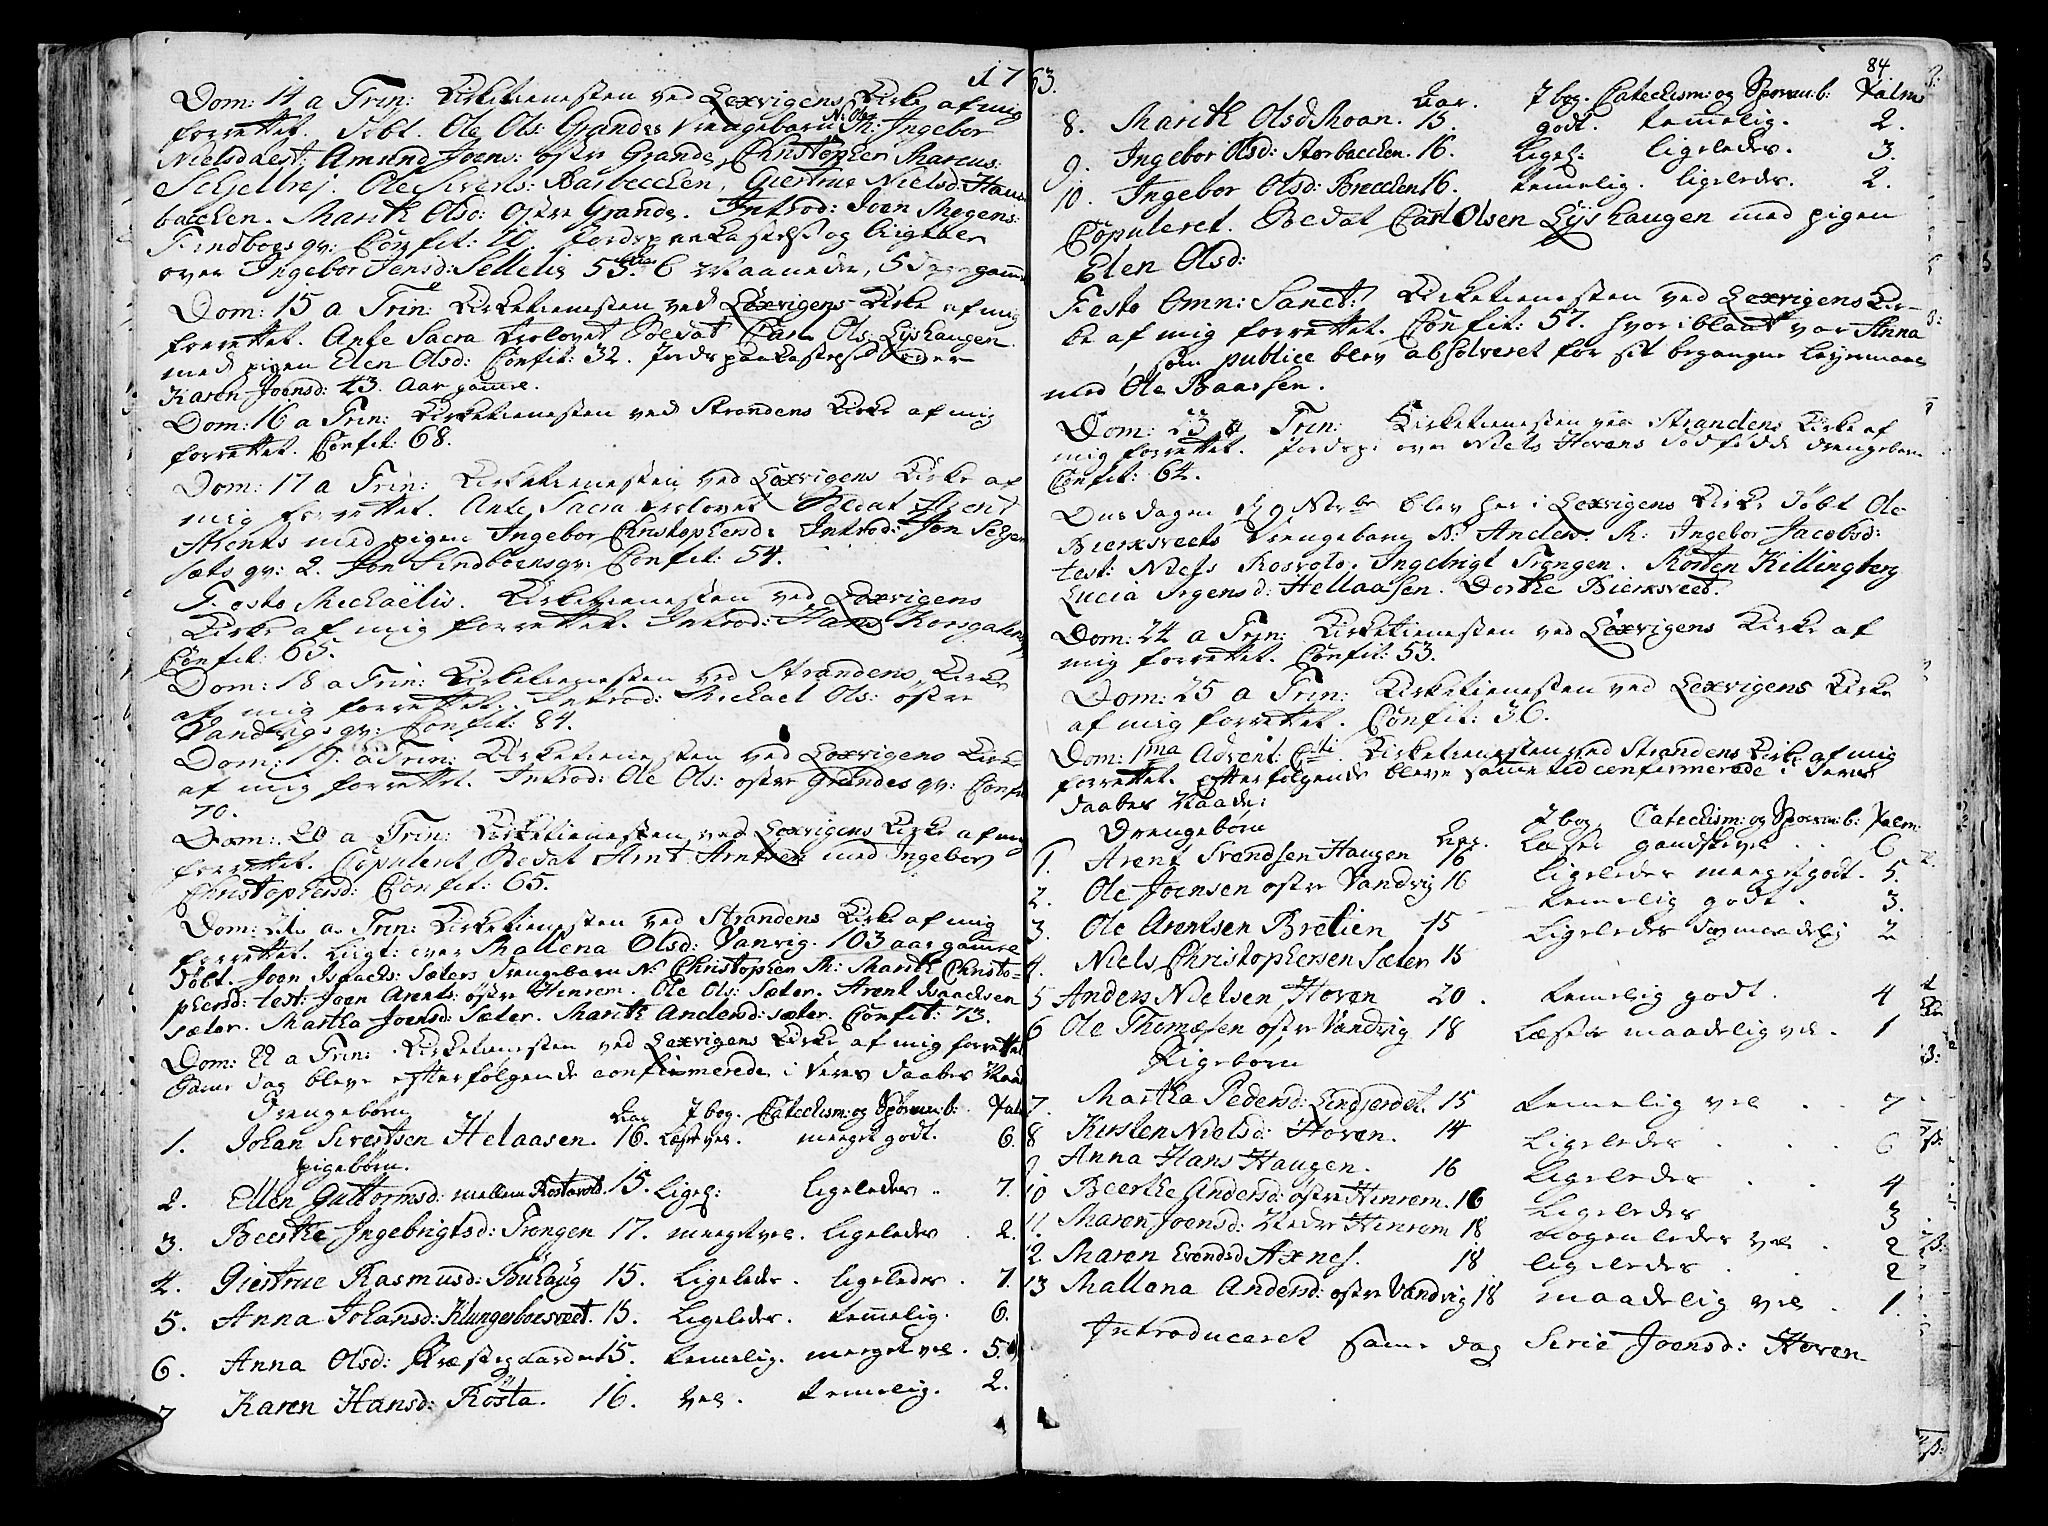 17
Dom: 14 a Trin: Kirketienesten ved Lexvigens Kirke af mig
forrettet. Döbt. Ole Ols: Grandes Drengebarn N: Ole. M: Ingebor
Nielsd. test: Amund Joens: östre Grande, Christopher Marcus:
Selgeltrej. Ole Sivers: Barbecchen, Giertrue Nielsd: Hans
bacchen. Marith Olsd: östre Grande. Introd: Joen Mogens:
Tindboes qv: Confit: 10. Jordspaakastelse og Liigtale
over Ingebor Jensd: Sellelis 55. Aar 6 Maaneder, 5 dage gamel
Dom: 15 a Trin: Kirketienesten ved Lexvigens Kirke af mig
forrettet. Ante Sacra trolovet Soldat Carl Ols: Lyshaugen
med pigen Elen Olsd: Confit: 32. Jordspaakastelse over
Karen Joensd: 43. Aar gamle.
Dom: 16 a Trin: Kirketienesten ved Strandens Kirke af mig
forrettet. Confit: 68.
Dom: 17 a Trin: Kirketienesten ved Lexvigens Kirke af
mig forrettet. Ante Sacra trolovet Soldat Arent
Arents med pigen Ingebor Christophersd: Introd: Jon Selge
sæts qv: 2. Jon Sindboens qv: Confit: 54.
Festo Michaëlis. Kirketienesten ved Lexvigens
Kirke af mig forrettet. Introd: Hans Korsgalens
Confit: 65.
Dom: 18 a Trin: Kirketienesten ved Strandens Kirke
af mig forrettet. Introd: Michael Ols: östre
Vandvigs qv: Confit: 84.
Dom: 19. a Trin: Kirketienesten ved Lexvigens Kirke
af mig forrettet. Introd: Ole Ols: östre Grandes qv: Confit
70.
Dom: 20 a Trin: Kirketienesten ved Lexvigens Kirke af mig
forrettet. Copulent Soldat Arnt Arntsen med Ingebor
Christophersd: Confit: 65.
Dom: 21 a Trin: Kirketienesten ved Strandens Kirke af mig
forrettet. Liigt: over Mallena Olsd: Vanvig. 103 aar gamle
Döbt. Joen Isaachs: Sæters Drengebarn N: Christopher M: Marith Christo-
phersd: test: Joen Arents: östre Hinrem. Ole Ols: Sæter. Arent Isaachsen
sæter. Martha Joensd: Sæter. Marith Andersd: sæter. Confit: 73.
Dom: 22 a Trin: Kirketienesten ved Lexvigens Kirke af mig forrettet
Same dag bleve efterfölgende confirmerede i deres Daabes Naade
Drengebörn Aar I bog. Catechism: og Sporsm: b: Psal
1. Johan Sivertsen Helaasen. 16. Læser vel. meeget godt. 6.
pigebörn.
2. Ellen Guttormsd: mellem Rostavold. 15. Ligel: ligeledes. 7.
3. Beerthe Ingebrigtsd: Trongen 17. meeget vel. ligeledes. 2.
4. Giertrue Rasmusd: Buhaug 15. Ligeledes. ligeledes. 7.
5. Anna Johansd: Klungerboesveet. 15. Ligeledes. temmelig. 6.
6. Anna Olsd: Præstegaarden 15. temelig. meeget vel. 5.
7 Karen Hansd: Rösta. 16. vel. temelig. 2.
63.
84.
Aar. I bog. Catechism: og Sporsm: b: Psalm
8. Marith Olsd Moan. 15. godt. temelig. 2.
9. Ingebor Olsd: Storbacchen. 16. Ligel: ligeledes. 3.
10. Ingebor Olsd: Brecchen 16. temelig. ligeledes. 2.
Copuleret. Soldat Carl Olsen Lyshaugen med pigen
Elen Olsd:
Festo Omn: Sanct: Kirketienesten ved Lexvigens Kir-
ke af mig forrettet. Confit: 57. hvoriblant var Anna
, som publice blev absolveret for sit begangne Leyermaal
med Ole Baarsen.
Dom: 23 a Trin: Kirketienesten ved Strandens Kirke af
mig forrettet. Jordsp: over Niels Hovens dödfödde Drengebarn
Confit: 64.
Onsdagen d. 9 Novbr blev her i Lexvigens Kirke Döbt Ole
Bierksveets Drengebarn N: Anders. M: Ingebor Jacobsd:
test: Niels Rosvold. Ingebrigt Trongen. Rosten Killingberg
Lucia Irgensd: Hellaasen. Dorthe Bierksveed.
Dom: 24 a Trin: Kirketienesten ved Lexvigens Kirke af
mig forrettet. Confit: 53.
Dom: 25 a Trin: Kirketienesten ved Lexvigens Kirke
af mig forrettet. Confit: 36.
Dom: 1ma Advent: Cti Kirketienesten ved Strandens Kirke af mig
forrettet. Efterfölgende bleve samme tid confirmerede i deres
daabes Naade:
Drengebörn Aar. I bog. Catechism: og Sporsm: b: Psalm:
1. Arent Svendsen Haugen 16 Læser gandske vel . . 6
2. Ole Joensen östre Vandvig 16 Ligeledes meeget godt. 5.
3. Ole Arentsen Bretien 15 temelig godt. 3.
4. Niels Christophersen Sæter 15 Ligeledes maadelig 2
5 Anders Nielsen Hoven 20. temelig godt. 4
6 Ole Thomesen östre Vandvig 18 Læser maadelig vel. 1
Pigebörn
7. Martha Pedersd: Lindjerdet. 15 temelig vel . . 7
8 Kirsten Nielsd: Hoven. 14 Ligeledes . . . 6
9. Anna Hans Haugen. 16 Ligeledes . . 4
10 Beerthe Andersd: östre Hinrem. 16 Ligeledes 3
11. Maren Joensd: Neder Hinrem 18 Nogenledes vel . 2
12 Maren Evendsd Axnes. 18 ligeledes . . 2
13 Mallena Andersd: östre Vandvig 18 maadelig vel . 1.
Introduceret same dag Serie Joensd: Hoven